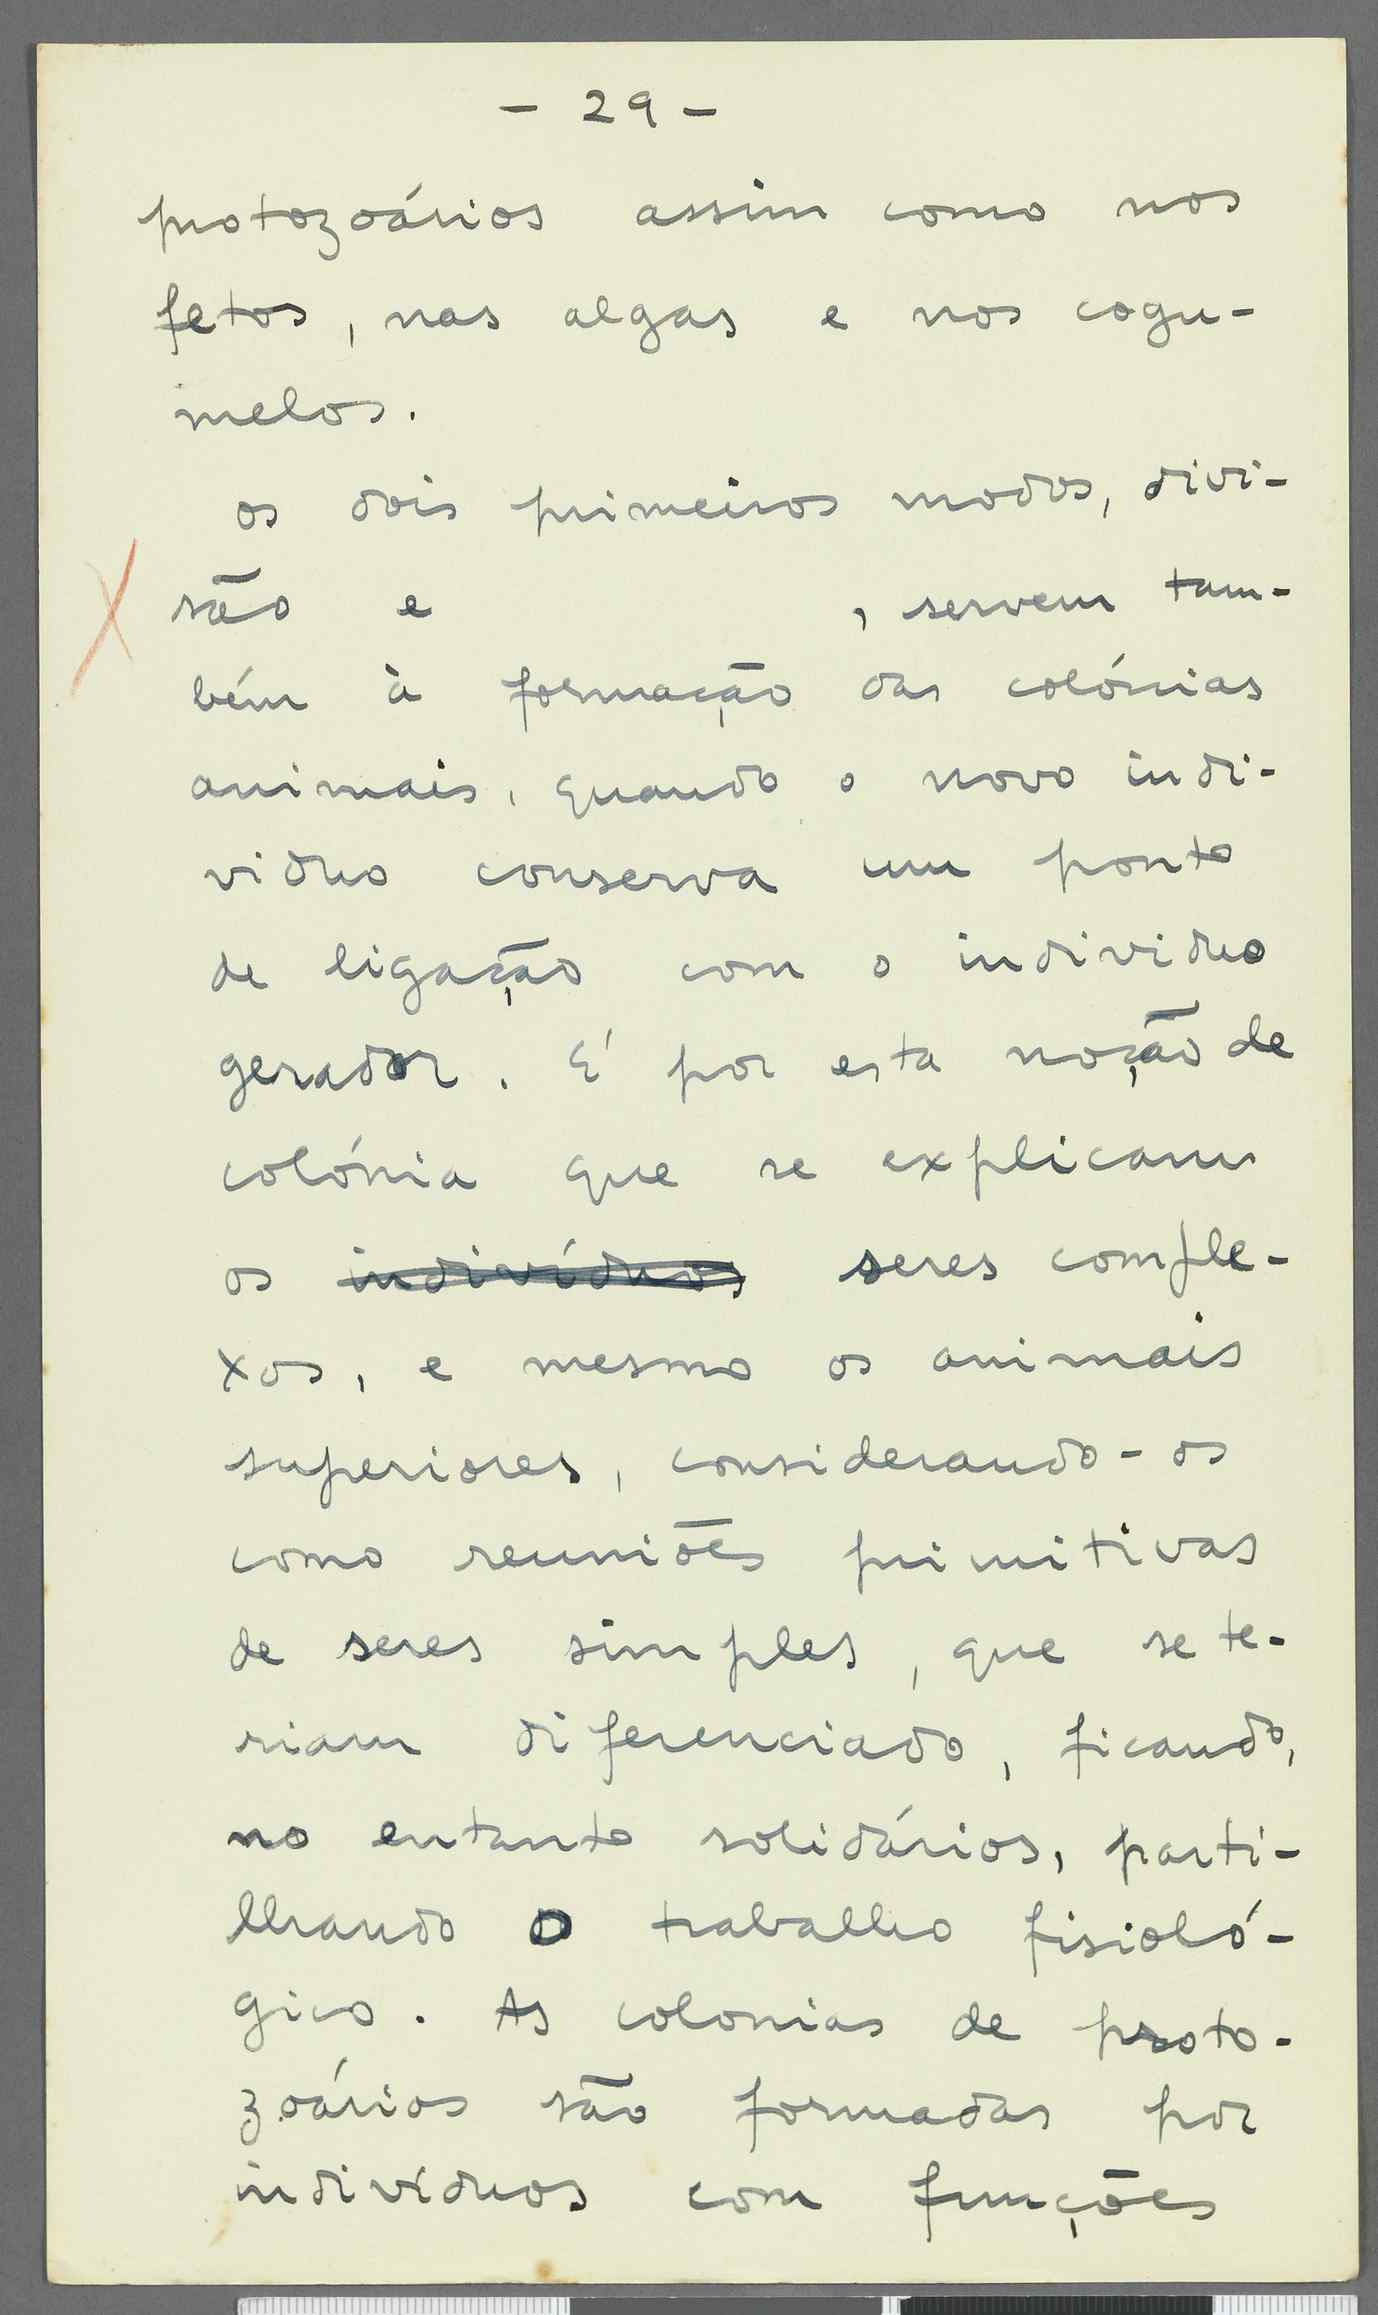 - 29 -
protozoários assim como nos
fetos, nas algas e nos cogu-
melos.
os dois primeiros modos, divi-
são e , servem tam-
bém à formação das colónias
animais, quando o novo indi-
viduo conserva um ponto
de ligação com o individuo
gerador. É por esta noção de
colónia que se explicam
os indivíduos seres comple-
xos, e mesmo os animais
superiores, considerando-os
como reuniões primitivas
de seres simples, que se te-
riam diferenciado, ficando,
no entanto solidários, parti-
lhando o trabalho fisioló-
gico. As colonias de proto-
zoários são formadas por
indivíduos com funções